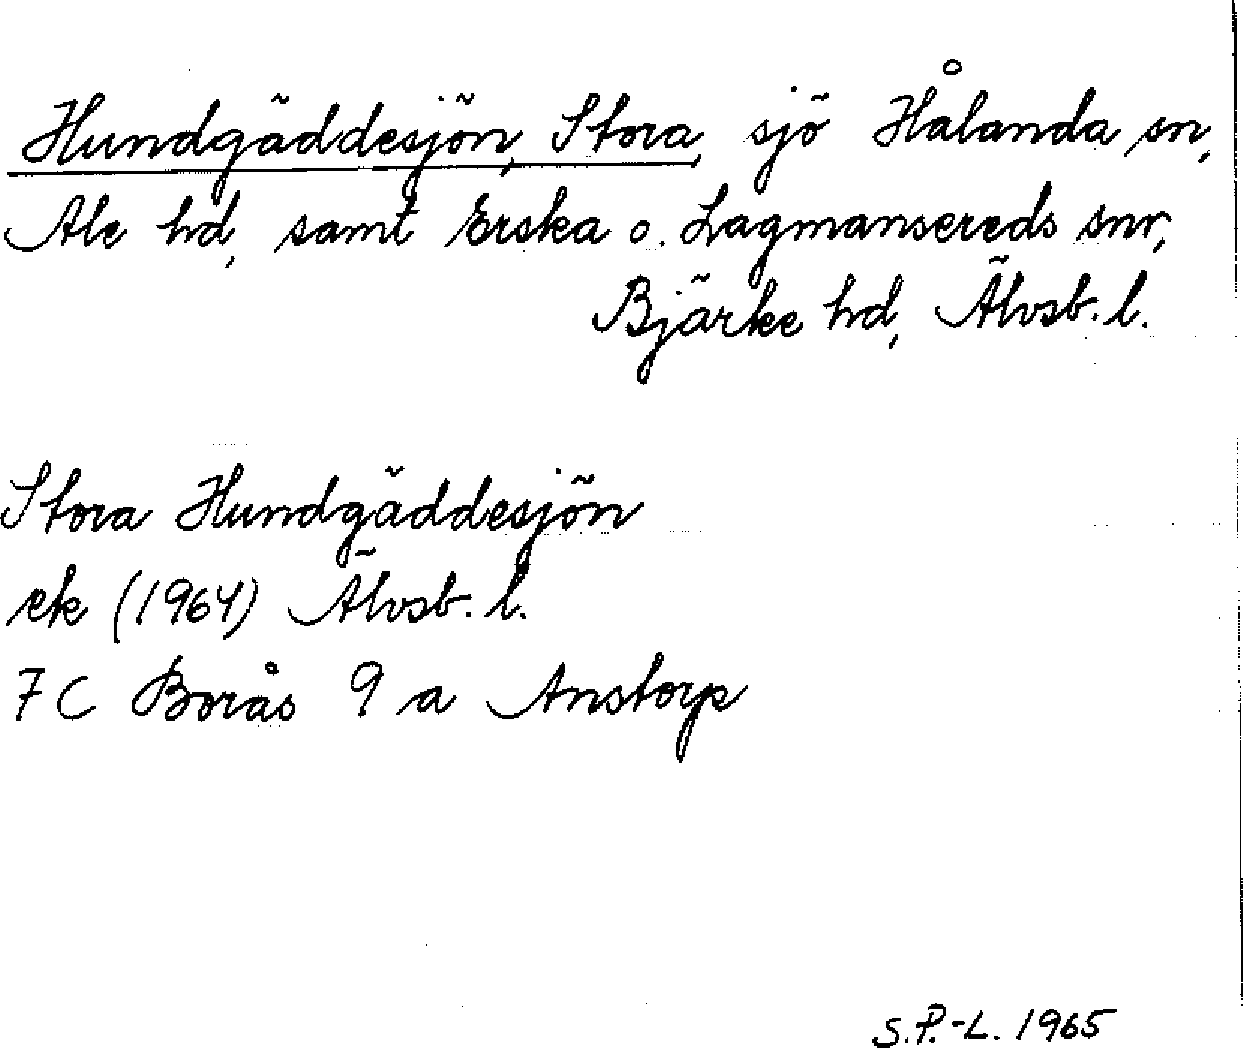 Hundgäddesjön, Stora, sjö Hålanda sn,
Ale hd, samt Erska o. Lagmansereds snr,
Bjärke hd, Älvsb. l.
Stora Hundgäddesjön
ek (1964) Älvsb. l.
7 C Borås 9 a Anstorp
S.P.-L. 1965